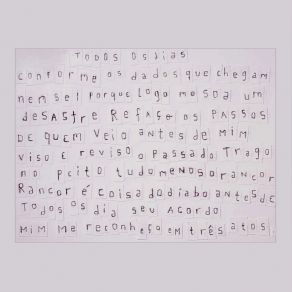 TODOS OS dias
conforme os dados que chegam
nem sei porque logo me soa um
desastre Refaço os PASSOS
DE QUEM VEIO ANTES DE MIM
VISO E REVISO O PASSADO TRAGO
no peito tudo menos o rancor
Rancor é coisa do diabo antes de
Todos os dia seu Acordo
MIM me reconheço em três atos.